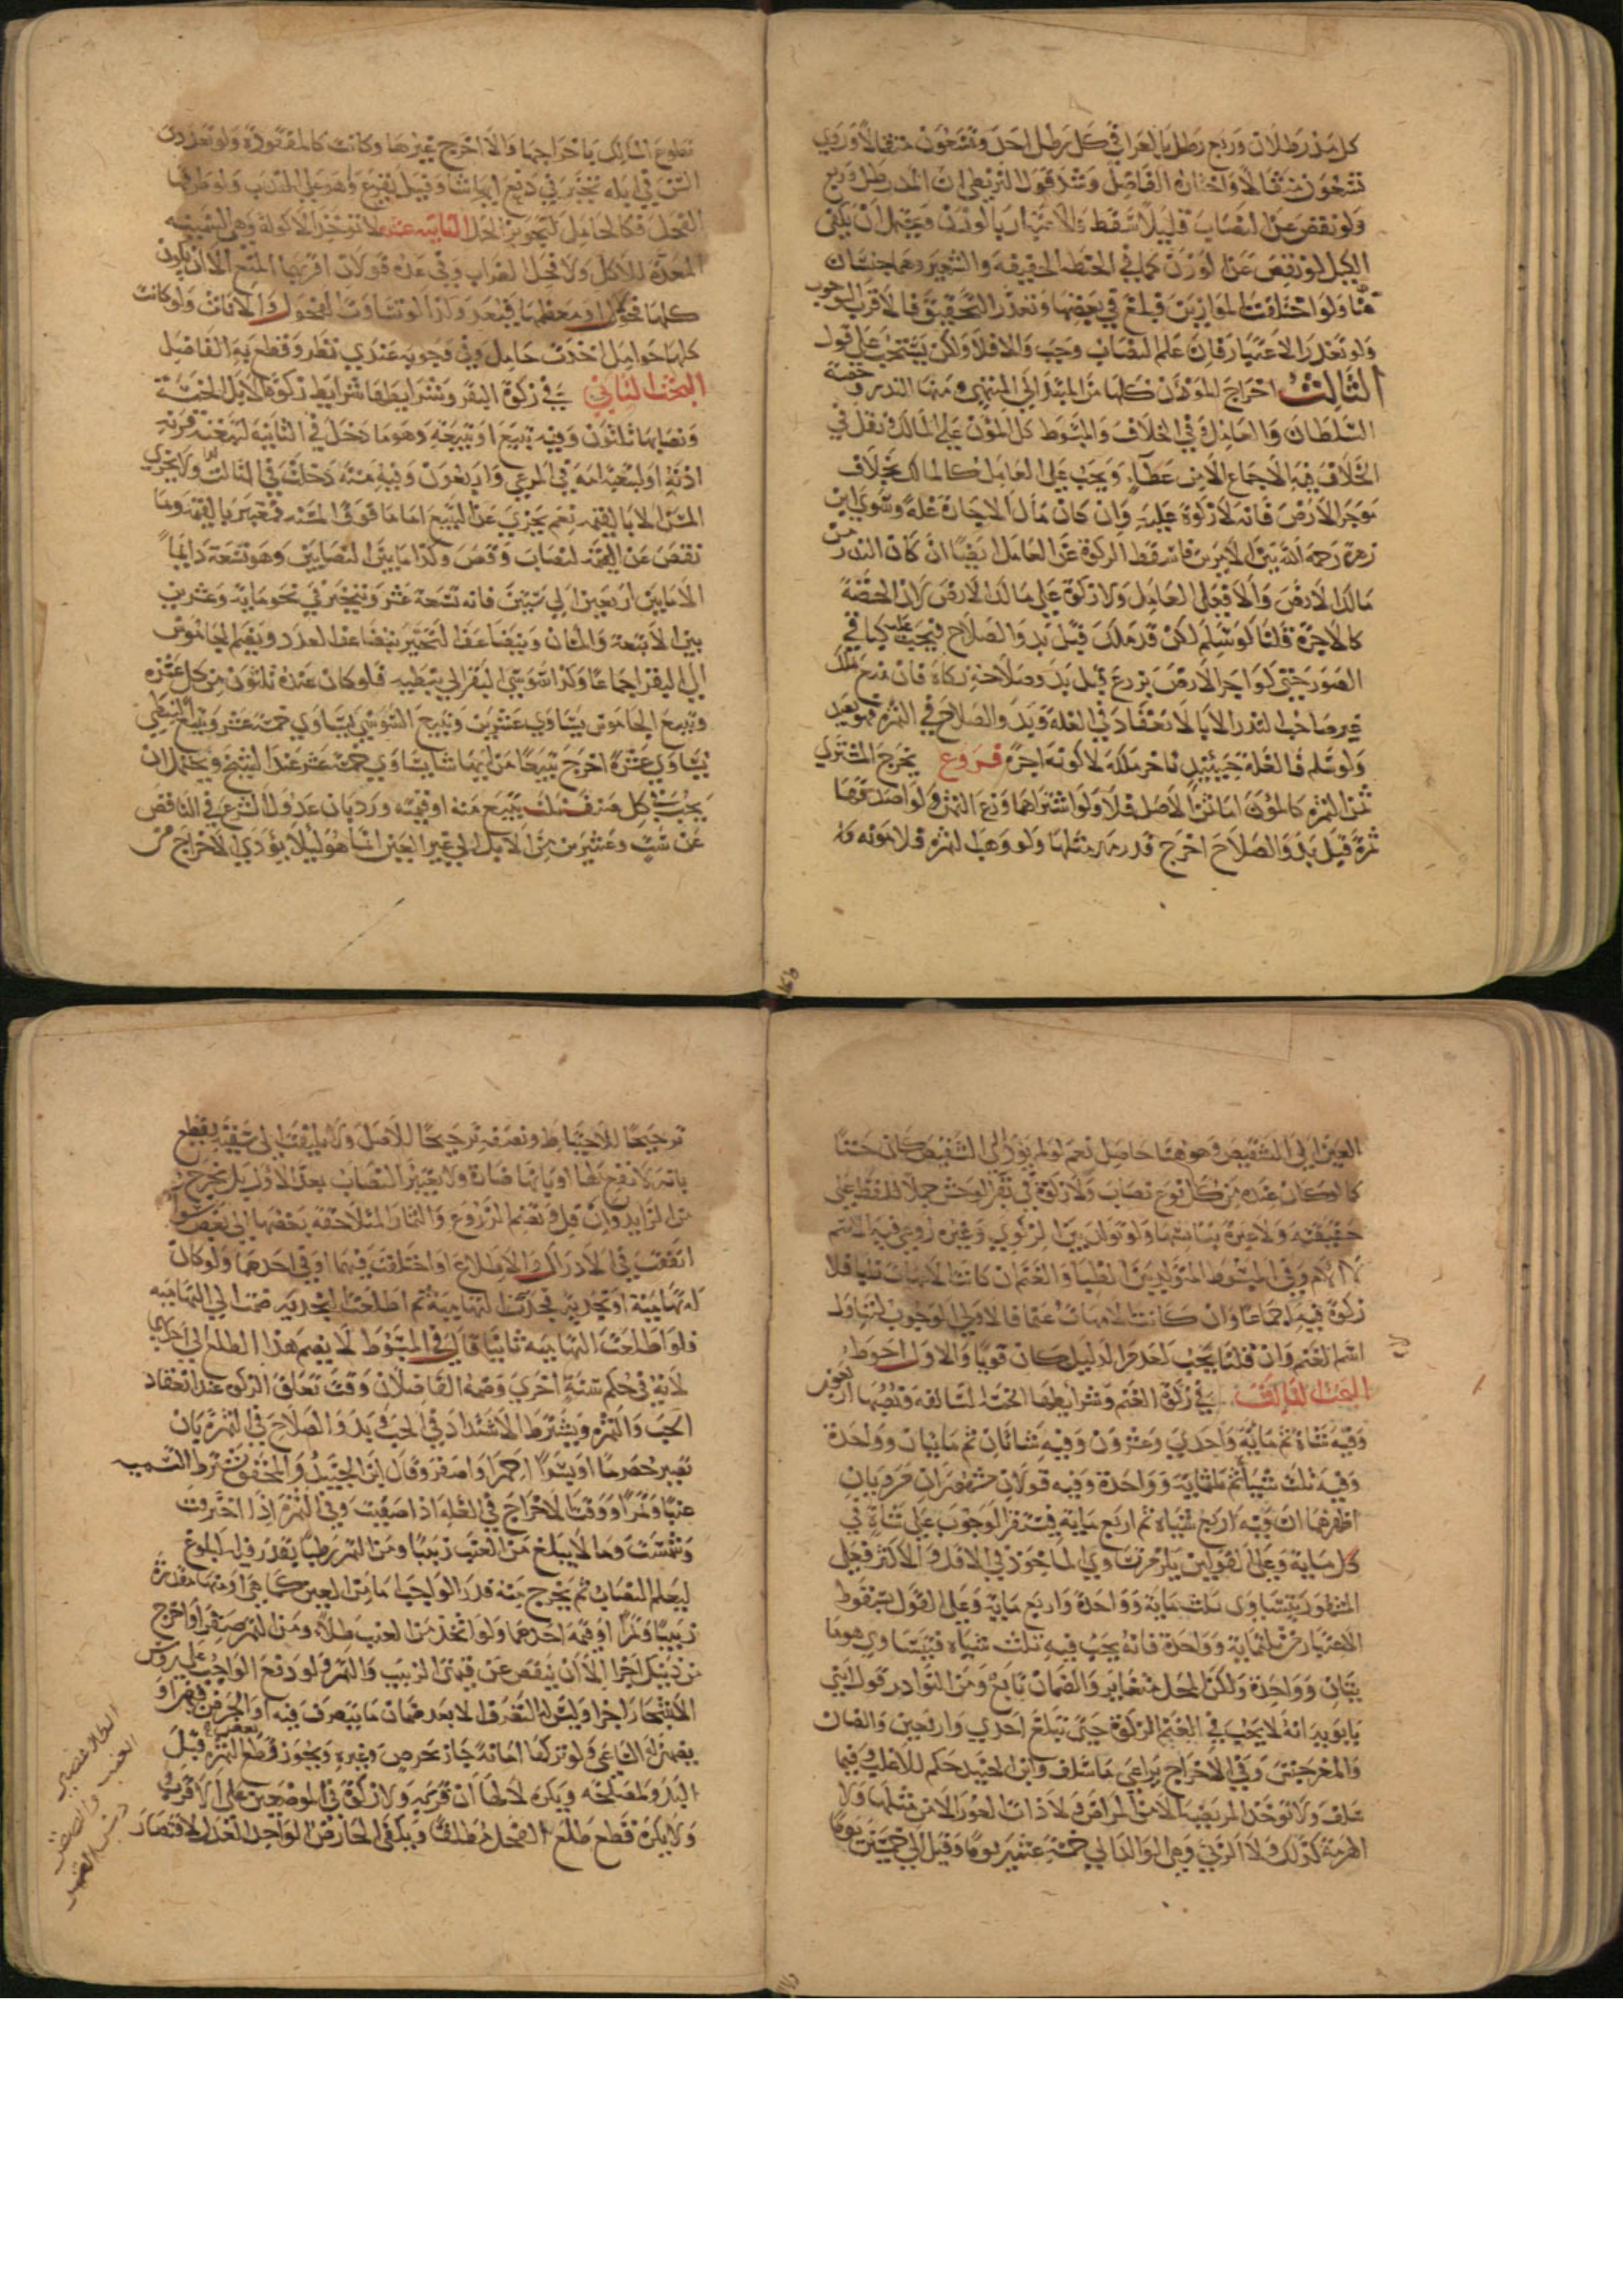 كل مد رطلان وربع رطل بالعراقي كل رطل احد وتسعون مثقالا وروي
تسعون مثقالا واختاره الفاضل وشذ قول البزنطي ان المد رطل وربع
ولو نقص عن النصاب قليلا سقط والاعتبار بالوزن ويحتمل ان يكفى
الكيل لو نقص عن الوزن كما في الحنطة الخفيفة والشعير وهما جنسان
هنا ولو اختلفت الموازين فبلغ في بعضها وتعذر التحقيق فالاقرب الوجوب
ولو تعذر الاعتبار فان علم النصاب وجب والا فلا ولكن يستحب على قول
الثالث اخراج المؤن كلها من المبتدا الى المنتهى ومنها البذر وحصة
السلطان والعامل وفي الخلاف والمبسوط كل المؤن على المالك ونقل في
الخلاف فيه الاجماع الا من عطاء ويجب على العامل كالمالك بخلاف
موجر الارض فانه لا زكوة عليه وان كان مال الاجارة غلة وسوى ابن
زهرة رحمه الله بين الامرين فاسقط الزكوة عن العامل ايضا ان كان البذر من
مالك الارض والا فعلى العامل ولا زكوة على مالك الارض لان الحصة
كالاجرة قلنا لو سلم لكن قد ملك قبل بدو الصلاح فيجب عليه كما في
الصور حتى لو اجر الارض بزرع قبل بدو صلاحه زكاه فان زرع
غير صاحب البذر الا بالانعقاد في الغلة وبدو الصلاح في الثمرة
ولو سلم فالغلة حينئذ ناخر ملكه لا كونه اجرة فروع يخرج المشتري
ثمن الثمرة كالمؤن اما ثمن الاصل فلا ولو اشتراهما وزع الثمن ولو اصدقها
ثمرة قبل بدو الصلاح اخرج قدر مهر مثلها ولو وهب الثمرة فلا مونه
تطوع المالك باخراجها والا اخرج غيرها وكانت كالمفقودة ولو تعدد
السن في ابله تخير في دفع ايها شا وقيل يقرع وهو على الندب ولو طرقها
الفحل فكالحامل لتجويز الحمل الثانية عشر لا توخذ الاكولة وهي السمينة
المعدة للاكل ولا فحل الضراب وفي عده قولان اقربهما المنع الا ان يكون
كلها فحولا او معظمها فيعد ولذا لو تساوت الفحول والاناث ولو كانت
كلها حوامل اخذت حامل وفي وجوبه عندي نظر وقطع به الفاضل
البحث الثاني في زكوة البقر وشرايطها شرايط زكوة الابل الخمسة
ونصابها ثلثون وفيه تبيع او تبيعة وهو ما دخل في الثانية لتبعه قرنه
اذنه او لتبعه امه في المرعى واربعون وفيه مسنة دخلت في الثالثة ولا يجزي
المسن الا بالقيمة نعم يجزي عن التبيع اما ما فوق المسنة فتعتبر بالقيمة وما
نقص عن النصاب وقص وكذا ما بين النصابين وهو تسعة دايما
الا ما بين اربعين الى ستين فانه تسعة عشر ويتخير في نحو ماية وعشرين
بين الاتبعة والمسان ويتضاعف التخير بتضاعف العدد ويضم الجاموس
الى البقر اجماعا وكذا السوسي البقر الى النبطية فلو كان عنده ثلثون من كل عشرة
وتبيع الجاموس يساوي عشرين وتبيع السوسي يساوي خمسة عشر وتبيع النبطي
يساوي عشرة اخرج تبيعا من ايها شا يساوي خمسة عشر عند الشيخ ويحتمل ان
يجب في كل صنف ثلث تبيع منه او قيمته ورد بان عدول الشرع في الناقص
عن ست وعشرين من الابل الى غير العين انما هو ليلا يؤدي الاخراج من
العين الى التشقيص وهو هنا حاصل نعم لو لم يؤد الى التشقيص كان حسنا
كما لو كان عنده من كل نوع نصاب ولا زكوة في بقر الوحش حملا للفظ على
حقيقته ولا عبرة بتانسها ولو تولد بين الزكوي وغيره روعي فيه الاسم
لا الام وفي المبسوط المتولد بين الظبا والغنم ان كانت الامهات ظبا فلا
زكوة فيه اجماعا وان كانت الامهات غنما فالاولى الوجوب لتناول
اسم الغنم وان قلنا لا يجب لعدم الدليل كان قويا والاول احوط
البحث الثالث في زكوة الغنم وشرايطها الخمسة السالفة ونصبها اربعون
وفيه شاة ثم ماية واحدى وعشرون وفيه شاتان ثم مايتان وواحدة
وفيه ثلث شياه ثم ثلثماية وواحدة وفيه قولان مشهوران مرويان
اظهرهما ان فيه اربع شياه ثم اربع ماية فيستقر الوجوب على شاة في
كل ماية وعلى القولين يلزم تساوي الماخوذ في الاقل والاكثر فجعل
المشهور بتساوى ثلث ماية وواحدة واربع ماية وعلى القول بسقوط
الاعتبار من ثلثماية وواحدة فانه يجب فيه ثلث شياه فيتساوى هو وما
يتان وواحدة ولكن المحل متغاير والضمان تابع ومن النوادر قول ابني
بابويه انه لا يجب في الغنم الزكوة حتى تبلغ احدى واربعين والضان
والمعز جنس وفي الاخراج يراعى ما سلف وابن الجنيد حكم للاغلب وفيما
سلف ولا توخذ المريضة الا من المراض ولا ذات العوار الا من مثلها ولا
الهرمة كذلك ولا الربى وهي الوالد الى خمسة عشر يوما وقيل الى خمسين يوما
ترجيحا للاحتياط وتصدقه ترجيحا للاصل ولا يلتفت الى سقيه بقطع
بانه لانفع بها او بانها ضارة ولا يعتبر النصاب بعد الاول بل يخرج
من الزايد وان قل وتضم الزروع والثمار المتلاحقة بعضها الى بعض سوا
اتفقت في الادراك والاطلاع او اختلفت فيهما او في احدهما ولو كان
له تهامية او نجدية فجذت التهامية ثم اطلعت النجدية ضمت الى التهامية
فلو اطلعت التهامية ثانيا قال في المبسوط لا يضم هذا الطلع الى
لانه في حكم سنة اخرى وضمه الفاضلان وقت تعلق الزكوة عند انعقاد
الحب والثمرة ويشترط الاشتداد في الحب وبدو الصلاح في الثمرة بان
تصير حصرما او بسرا احمر او اصفر وقال ابن الجنيد والمحقق يشترط التسمية
عنبا وتمرا ووقت الاخراج في الغلة اذا صفيت وفي الثمرة اذا اخترفت
وشمست وما لا يبلغ من العنب زبيبا ومن التمر رطبا يقدر فيه البلوغ
ليعلم النصاب ثم يخرج منه قدر الواجب اما من العين كما هي او منها مقدرة
زبيبا وتمرا او قيمة احدهما ولو اتخذ من العنب طلاء ومن التمر صقرا واخرج
من ذينك اجزا الا ان ينقص عن قيمتي الزبيب والتمر ولو دفع الواجب على روس
الاشجار اجزا وليس له التصرف الا بعد ضمان ما يتصرف فيه او الخرص
بعض
يضمنه الساعي ولو تركها امانة جاز بخرص وغيره ويجوز قطع الثمرة قبل
البدو لمصلحة ويكره لا لها ان قربه ولا زكوة في الموضعين على الاقرب
ولا يكره قطع طلع الفحل مطلقا ويكفى الخارص الواحد العدل لاقتصار
الطلا عصير
العنب والصقر
دبس التمر